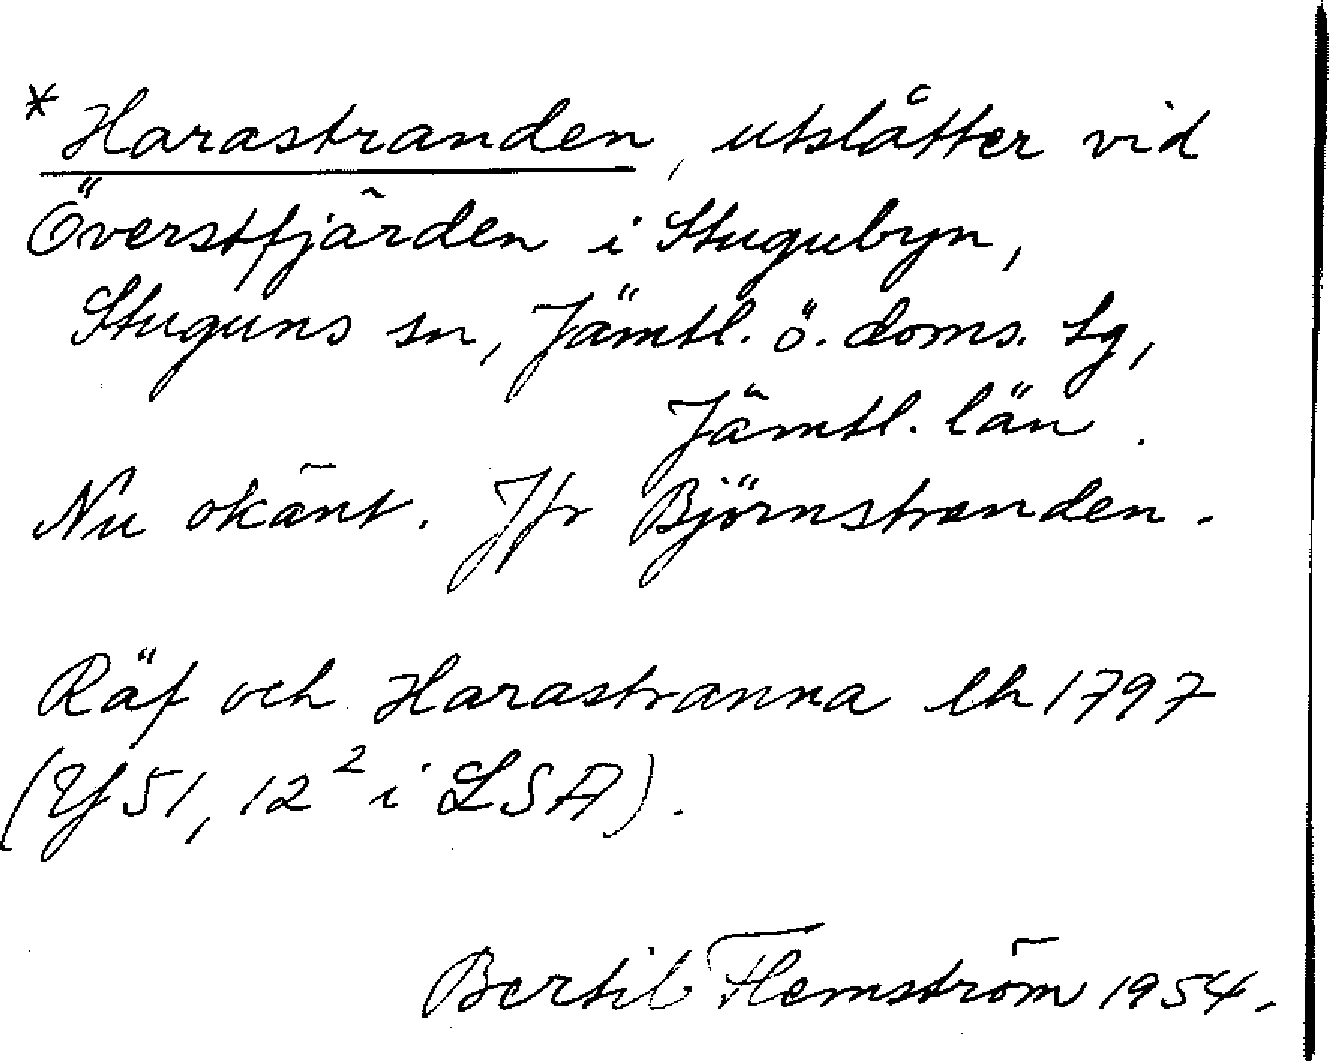 * Harastranden, utslåtter vid
Överstfjärden i Stugubyn,
Stuguns sn, Jämtl. ö. doms. tg,
Jämtl. län.
Nu okänt. Jfr Björnstranden.
Räf och Harastranna lh 1797
(Y51, 12² i LSA).
Bertil Flemström 1954.